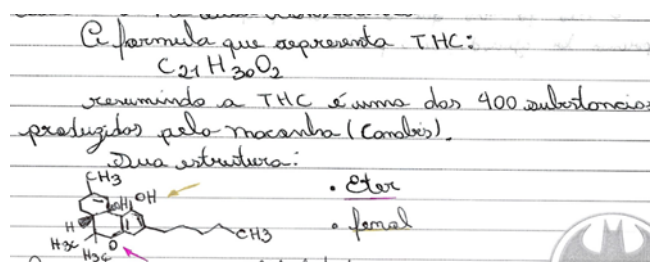 A formula que representa THC:
C21H30O2
resumindo a THC é uma das 400 substancias
produzidas pelo maconha (Canabis).
Sua estrutura:
CH3
OH
H
H
H3C
H3C
O
CH3
• Eter
• fenol